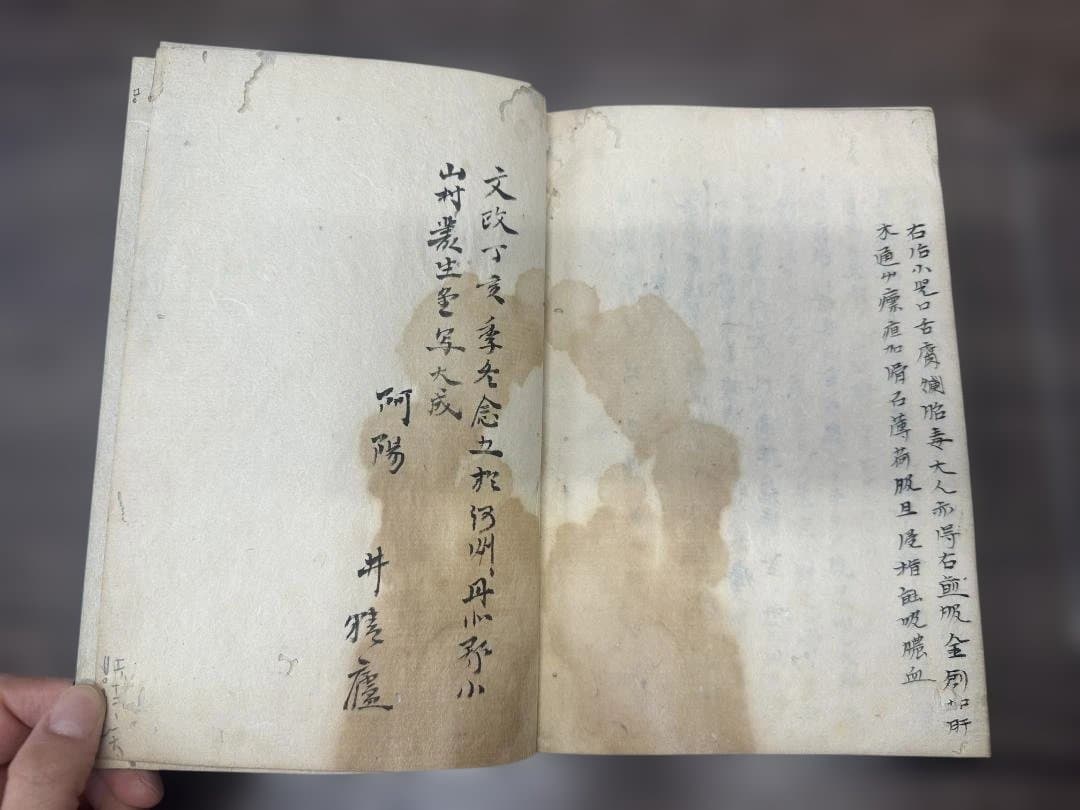 右治小児口舌腐爛胎毒大人亦得右煎服全剤加肝
木通小瘭疽加滑石薄荷服且浸指能吸膿血
文政丁亥季冬念五於河州丹北郡小
山村叢生堂写大成
阿陽
井晴廬